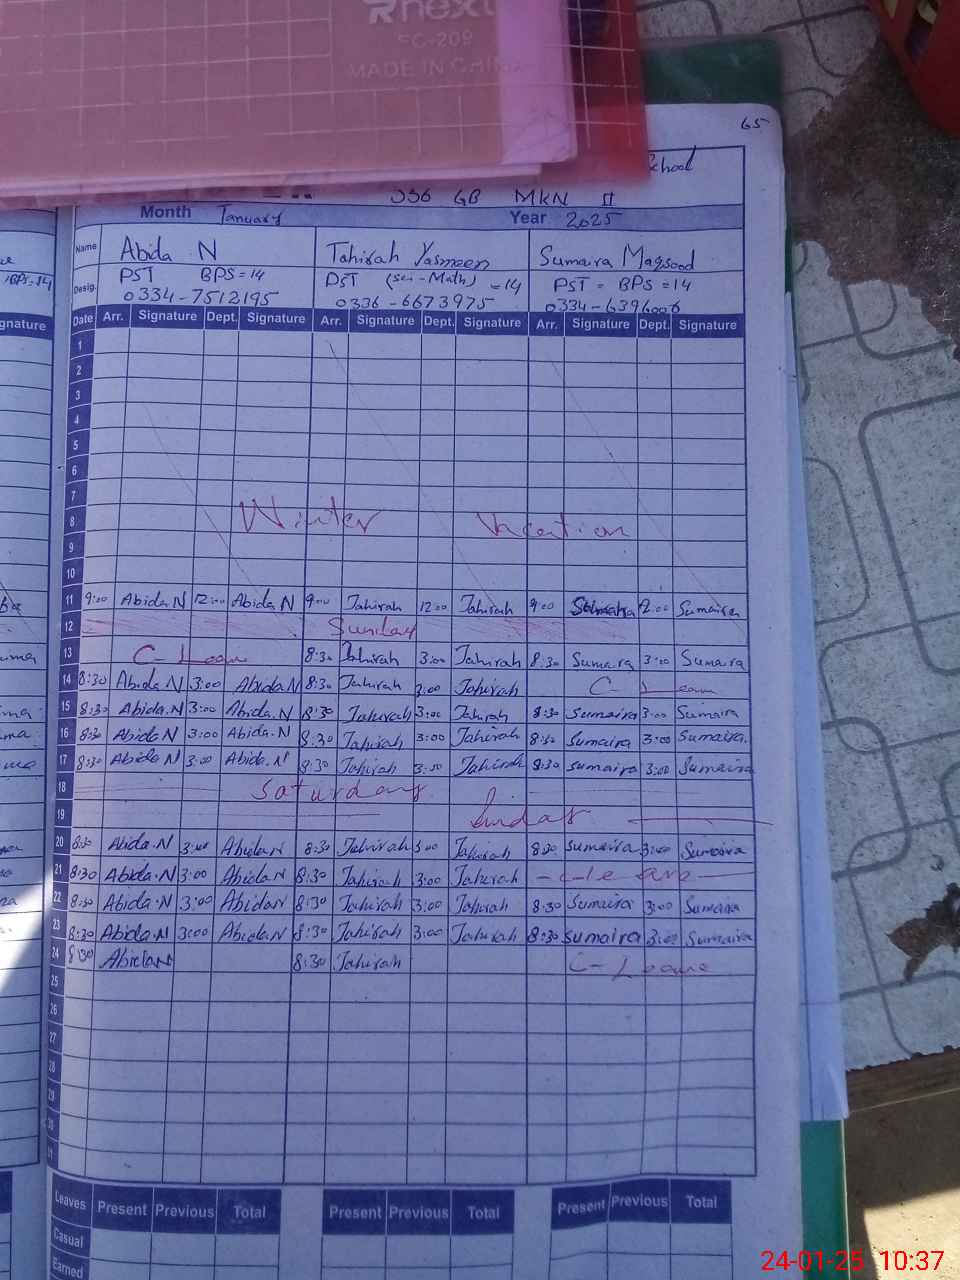 Rnext
FC-209
MADE IN CHINA
65
School
336 GB MKN II
Month January Year 2025
Name Abida N Tahirah Yasmeen Sumaira Maqsood
Desig. PST BPS=14 PST (Sci-Math) =14 PST - BPS=14
0334-7512195 0336-6673975
Date Arr. Signature Dept. Signature Arr. Signature Dept. Signature Arr. Signature Dept. Signature
1
2
3
4
5
6
7
8 Winter Vacation
9
10
11 9:00 Abida.N 12:00 Abida.N 9:00 Tahirah 12:00 Tahirah 9:00 Sumaira 12:00 Sumaira
12 Sunday
13 C-Leave 8:30 Tahirah 3:00 Tahirah 8:30 Sumaira 3:00 Sumaira
14 8:30 Abida.N 3:00 Abida.N 8:30 Tahirah 3:00 Tahirah C-Leave
15 8:30 Abida.N 3:00 Abida.N 8:30 Tahirah 3:00 Tahirah 8:30 Sumaira 3:00 Sumaira
16 8:30 Abida N 3:00 Abida.N 8:30 Tahirah 3:00 Tahirah 8:30 Sumaira 3:00 Sumaira
17 8:30 Abida N 3:00 Abida.N 8:30 Tahirah 3:00 Tahirah 8:30 Sumaira 3:00 Sumaira
18 Saturday
19 Sunday
20 8:30 Abida.N 3:00 Abida N 8:30 Tahirah 3:00 Tahirah 8:30 Sumaira 3:00 Sumaira
21 8:30 Abida.N 3:00 Abida N 8:30 Tahirah 3:00 Tahirah - C-leave -
22 8:30 Abida.N 3:00 Abida N 8:30 Tahirah 3:00 Tahirah 8:30 Sumaira 3:00 Sumaira
23 8:30 Abida.N 3:00 Abida N 8:30 Tahirah 3:00 Tahirah 8:30 Sumaira 3:00 Sumaira
24 8:30 Abida N 8:30 Tahirah C-Leave
25
26
27
28
29
30
31
Leaves Present Previous Total Present Previous Total Present Previous Total
Casual
Earned
24-01-25 10:37